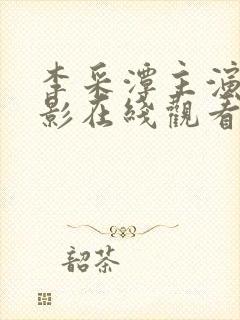 李采潭主演
影在綫觀看
韶茶